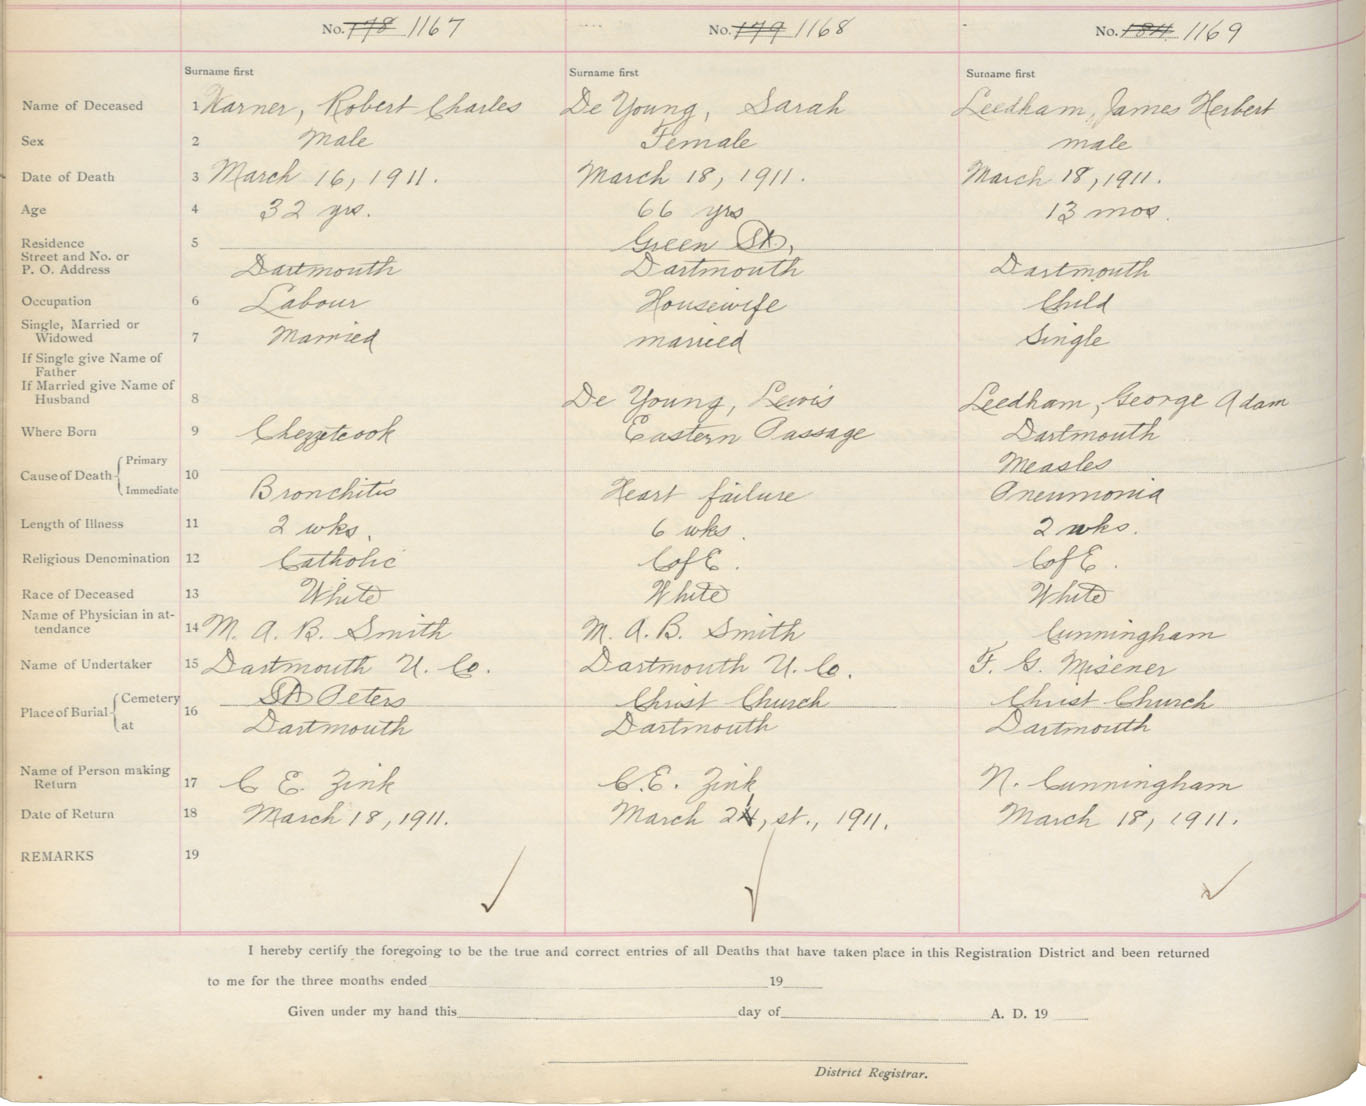 No. 178 1167 No. 179 1168 No. 184 1169
Surname first Surname first Surname first
Name of Deceased 1 Warner, Robert Charles De Young, Sarah Leedham, James Herbert
Sex 2 Male Female male
Date of Death 3 March 16, 1911. March 18, 1911. March 18, 1911.
Age 4 32 yrs. 66 yrs 13 mos.
Residence 5 Green St,
Street and No. or
P. O. Address Dartmouth Dartmouth Dartmouth
Occupation 6 Labour Housewife Child
Single, Married or
Widowed 7 Married married Single
If Single give Name of
Father
If Married give Name of
Husband 8 De Young, Lewis Leedham, George Adam
Where Born 9 Chezzetcook Eastern Passage Dartmouth
Cause of Death Primary 10 Measles
Immediate Bronchitis Heart failure Pneumonia
Length of Illness 11 2 wks. 6 wks. 2 wks.
Religious Denomination 12 Catholic C of E. C of E.
Race of Deceased 13 White White White
Name of Physician in at-
tendance 14 M. A. B. Smith M. A. B. Smith Cunningham
Name of Undertaker 15 Dartmouth U. Co. Dartmouth U. Co. F. G. Misener
Place of Burial Cemetery 16 St Peters Christ Church Christ Church
at Dartmouth Dartmouth Dartmouth
Name of Person making
Return 17 C E. Zink C. E. Zink N. Cunningham
Date of Return 18 March 18, 1911. March 21, st., 1911. March 18, 1911.
REMARKS 19
I hereby certify the foregoing to be the true and correct entries of all Deaths that have taken place in this Registration District and been returned
to me for the three months ended 19
Given under my hand this day of A. D. 19
District Registrar.